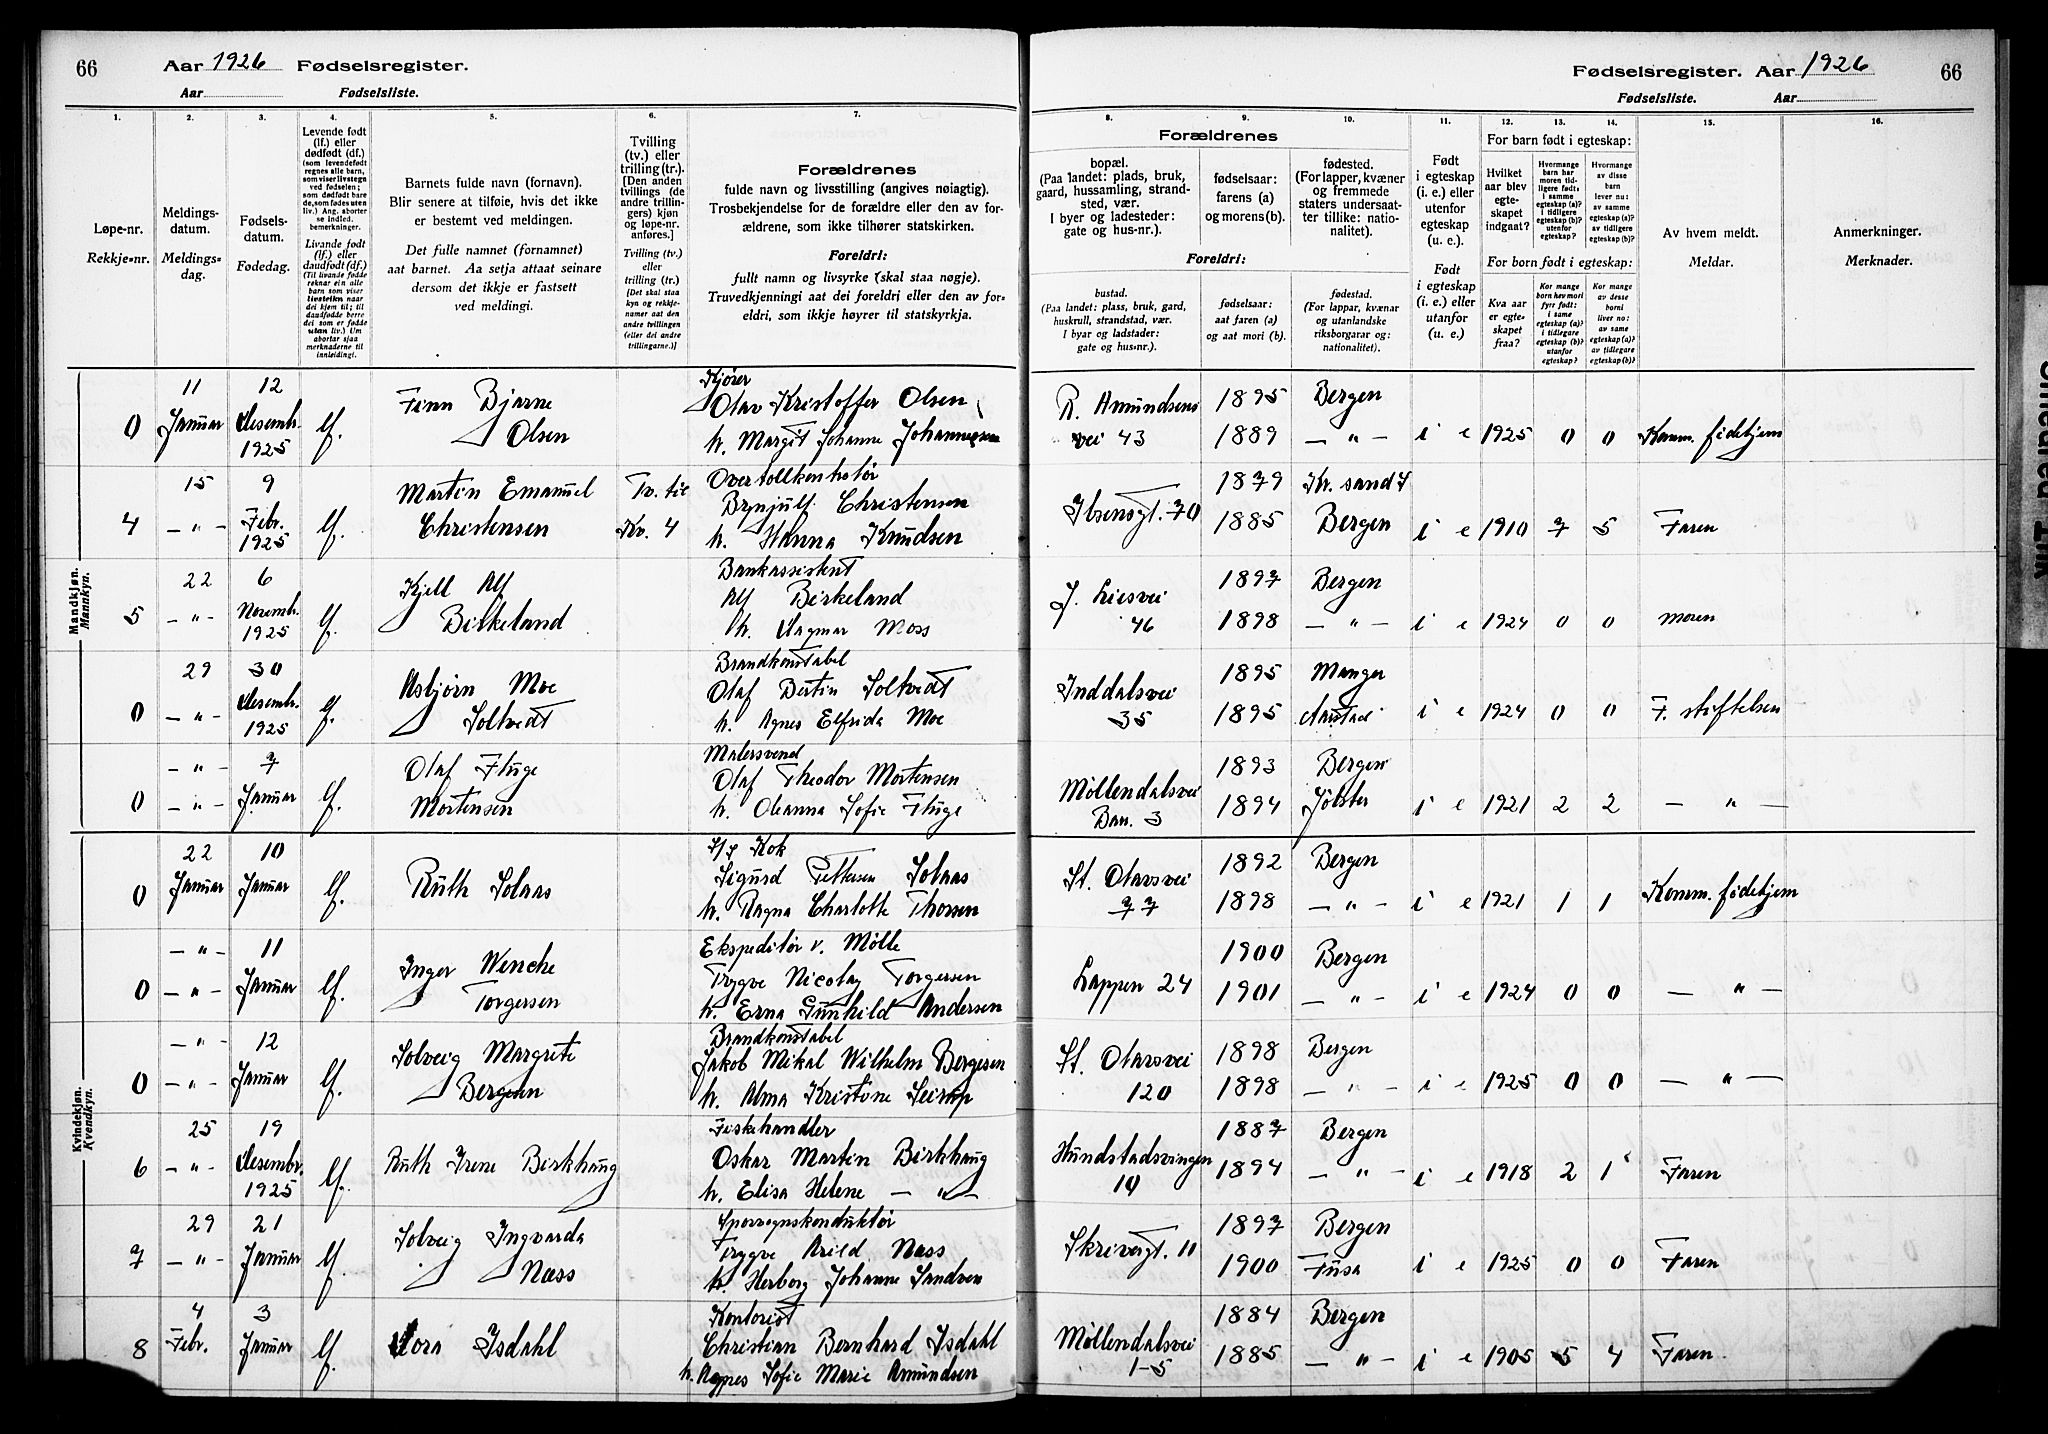 66 Aar 1926 Fødselsregister.
Aar Fødselsliste.
Fødselsregister. Aar 1926 66
Fødselsliste. Aar
1. 2. 3. 4. 5. 6. 7.
Løpe-nr.
Rekkje-nr.
Meldings-
datum.
Meldings-
dag.
Fødsels-
datum.
Fødedag.
Levende født
(lf.) eller
dødfødt (df.)
(som levendefødt
regnes alle barn,
som viser livstegn
ved fødselen;
som dødfødt bare
de, som fødes uten
liv.) Ang. aborter
se indled.
bemerkninger.
Livande født
(lf.) eller
daudfødt (df.)
(Til livande fødde
reknar ein alle
barn som viser
livsteikn naar
dei kjem til; til
daudfødde berre
dei som er fødde
utan liv.) Um
abortar sjaa
merknaderne til
innleidingi.
Barnets fulde navn (fornavn).
Blir senere at tilføie, hvis det ikke
er bestemt ved meldingen.
Det fulle namnet (fornamnet)
aat barnet. Aa setja attaat seinare
dersom det ikkje er fastsett
ved meldingi.
Tvilling
(tv.) eller
trilling (tr.).
[Den anden
tvillings (de
andre trillin-
gers) kjøn
og løpe-nr.
anføres.]
Tvilling (tv.)
eller
trilling (tr.)
[Det skal staa
kyn og rekkje-
numer aat den
andre tvillingen
(eller dei andre
trillingarne.)]
Forældrenes
fulde navn og livsstilling (angives nøiagtig).
Trosbekjendelse for de forældre eller den av for-
ældrene, som ikke tilhører statskirken.
Foreldri:
fullt namn og livsyrke (skal staa nøgje).
Truvedkjenningi aat dei foreldri eller den av for-
eldri, som ikkje høyrer til statskyrkja.
8. 9. 10. 11. 12. 13. 14. 15. 16.
Forældrenes
bopæl.
(Paa landet: plads, bruk,
gaard, hussamling, strand-
sted, vær.
I byer og ladesteder:
gate og hus-nr.).
fødselsaar:
farens (a)
og morens (b).
fødested.
(For lapper, kvæner
og fremmede
staters undersaat-
ter tillike: natio-
nalitet).
Foreldri:
bustad.
(Paa landet: plass, bruk, gard,
huskrull, strandstad, vær.
I byar og ladstader:
gate og hus-nr.).
fødselsaar:
aat faren (a)
og aat mori (b).
fødestad.
(For lappar, kvænar
og utanlandske
riksborgarar og:
nationalitet).
Født
i egteskap
(i. e.) eller
utenfor
egteskap
(u. e.).
Født
i egteskap
(i. e.) eller
utanfor
(u. e.)
For barn født i egteskap:
Hvilket
aar blev
egte-
skapet
indgaat?
Hvormange
barn har
moren tid-
ligere født:
i samme
egteskap (a)?
i tidligere
egteskap (b)?
utenfor
egteskap?
Hvormange
av disse
barn
lever nu:
av samme
egteskap (a)?
av tidligere
egteskap (b)?
For born født i egteskap:
Kva aar
er egte-
skapet
fraa?
Kor mange
born hev mori
fyrr født:
i same
egteskap (a)?
i tidlegare
egteskap (b)?
utanfor
egteskap?
Kor mange
av desse
borni
liver no:
av same
egteskap (a)?
av tidlegare
egteskap (b)?
Av hvem meldt.
Meldar.
Anmerkninger.
Merknader.
Mandkjøn.
Mannkyn.
0 11 Januar 12 Desembr. 1925 lf. Finn Bjarne Olsen Kjører Olav Kristoffer Olsen h. Margit Johanne Johannesen R. Amundsens vei 43 1895 1889 Bergen — " — i e 1925 0 0 Komm. fødehjem
4 15 — " — 9 Febr. 1925 lf. Martin Emanuel Christensen Tv. til Kv. 4 Overtollkontrolør Brynjulf Christensen h. Hanna Knudsen Ibsensgt. 70 1879 1885 Kr. sand S Bergen i e 1910 7 5 Faren
5 22 — " — 6 Novembr. 1925 lf. Kjell Alf Birkeland Bankassistent Alf Birkeland h. Dagmar Moss J. Liesvei 46 1897 1898 Bergen — " — i e 1924 0 0 Moren
0 29 — " — 30 Desembr. 1925 lf. Asbjørn Moe Soltvedt Brandkonstabel Olaf Bertin Soltvedt h. Agnes Elfrida Moe Inddalsvei 35 1895 1895 Manger Aarstad i e 1924 0 0 F. stiftelsen
0 — " — — " — 7 Januar lf. Olaf Fluge Mortensen Malersvend Olaf Theodor Mortensen h. Oleanna Sofie Fluge Møllendalsvei Bar. 3 1893 1894 Bergen Jølster i e 1921 2 2 — " —
Kvindekjøn.
Kvendkyn.
0 22 Januar 10 Januar lf. Ruth Solaas S/S Kok Sigurd Pettersen Solaas h. Ragna Charlotte Thorsen St. Olavsvei 77 1892 1898 Bergen — " — i e 1921 1 1 Komm. fødehjem
0 — " — — " — 11 Januar lf. Inger Wenche Torgersen Ekspeditør v. Mølle Trygve Nicolay Torgersen h. Erna Gunhild Andersen Lappen 24 1900 1901 Bergen — " — i e 1924 0 0 — " —
0 — " — — " — 12 Januar lf. Solveig Margrete Bergesen Brandkonstabel Jakob Mikal Wilhelm Bergesen h. Alma Kristine St. Olavsvei 120 1898 1898 Bergen — " — i e 1925 0 0 — " —
6 25 — " — 19 Desembr. 1925 lf. Ruth Irene Birkhaug Fiskehandler Oskar Martin Birkhaug h. Elisa Helene — " — Hundstadsvingen 10 1887 1894 Bergen — " — i e 1918 2 1 Faren
7 29 — " — 21 Januar lf. Solveig Ingvarda Næss Sporvognskonduktør Trygve Arild Næss h. Herborg Johanne Sandven Skrivergt. 11 1897 1900 Bergen Fusa i e 1925 0 0 Faren
8 4 Febr. 3 Januar lf. Dora Isdahl Kontorist Christian Bernhard Isdahl h. Agnes Sofie Marie Amundsen Møllendalsvei 1-5 1884 1885 Bergen — " — i e 1905 5 4 Faren